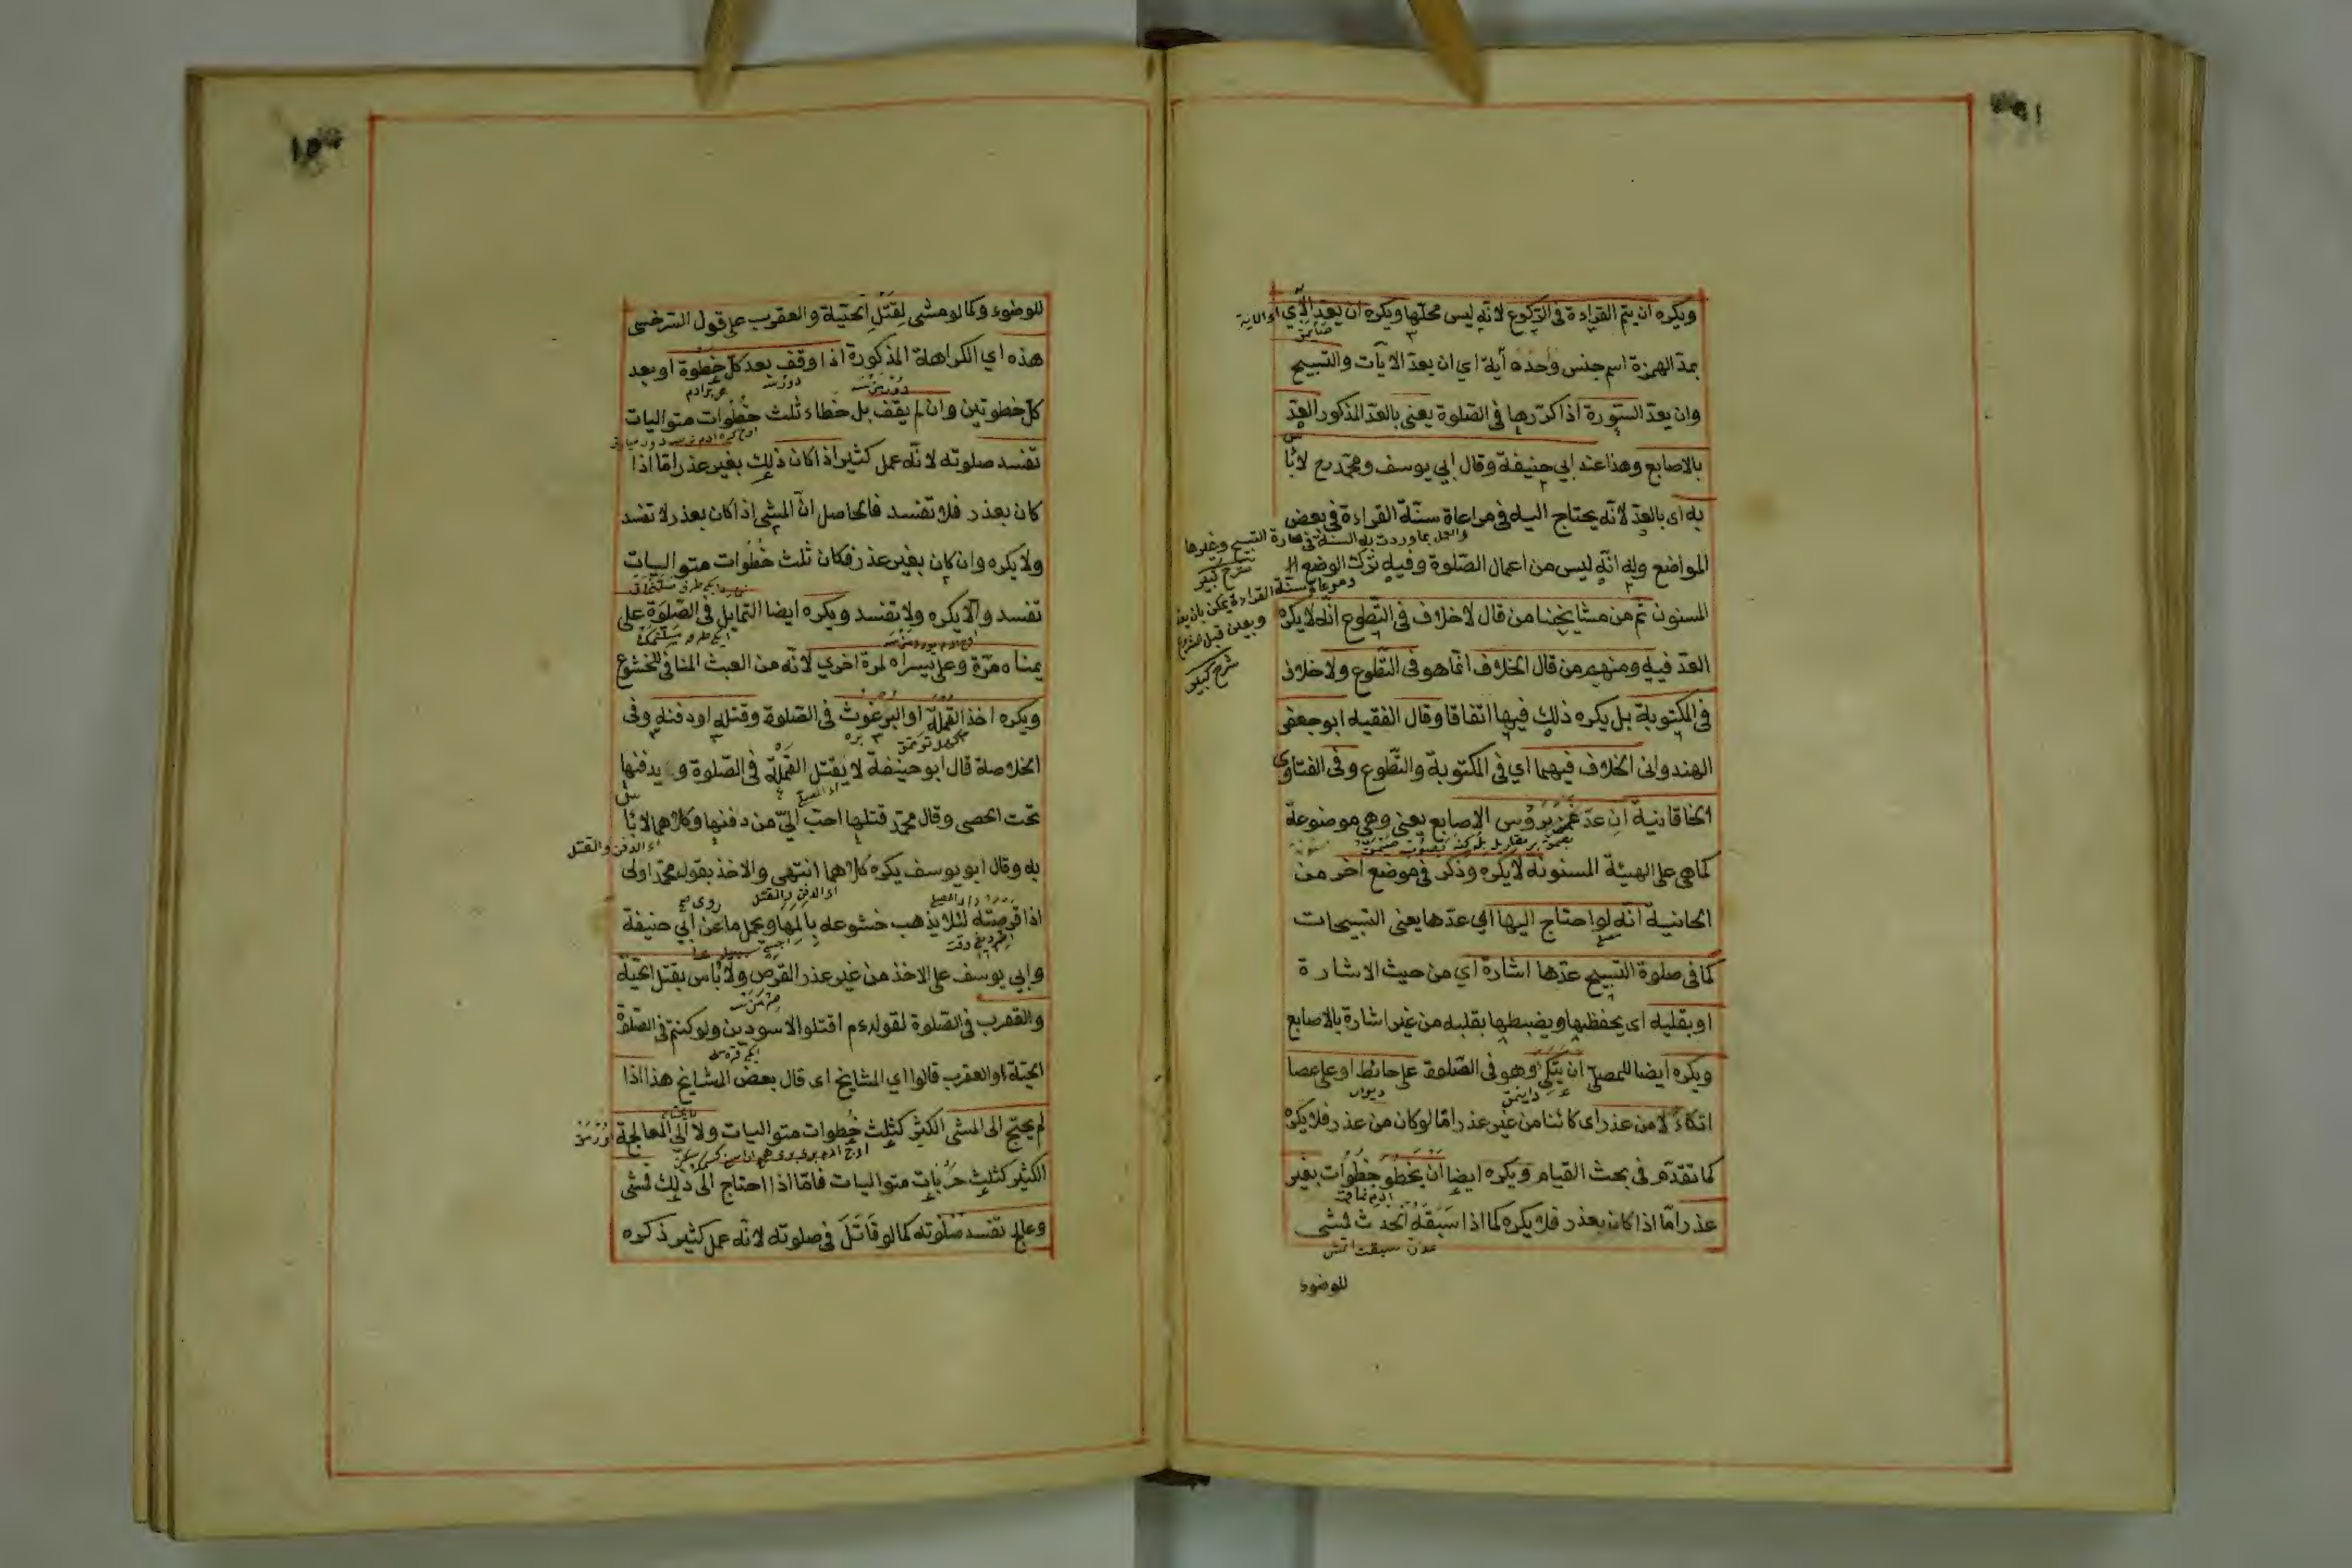 ويكره ان يتم القراءة في الركوع لانه ليس محلها ويكره ان يعد الآي
بمد الهمزة اسم جنس وحده آية اي ان يعد الآيات والتسبيح
وان يعد السورة اذا كررها في الصلوة يعني بالعد المذكور العد
بالاصابع وهذا عند ابي حنيفة وقال ابي يوسف ومحمد رح لا بأس
به اى بالعد لانه يحتاج اليه في مراعاة سنة القراءة في بعض
المواضع وله انه ليس من اعمال الصلوة وفيه ترك الوضع
المسنون ثم من مشايخنا من قال لا خلاف في التطوع انه لا يكره
العد فيه ومنهم من قال الخلاف انما هو في التطوع ولا خلاف
في المكتوبة بل يكره ذلك فيها اتفاقا وقال الفقيه ابو جعفر
الهندواني الخلاف فيهما اي في المكتوبة والتطوع وفي الفتاوى
الخاقانية ان عد غمز برؤس الاصابع يعني وهي موضوعة
كما هي على الهيئة المسنونة لا يكره وذكر في موضع آخر من
الخانية انه لو احتاج اليها الى عدها يعني التسبيحات
كما في صلوة التسبيح عدها اشارة اي من حيث الاشارة
او بقلبه اى يحفظها ويضبطها بقلبه من غير اشارة بالاصابع
ويكره ايضا للمصلي ان يتكئ وهو في الصلوة على حائط او على عصا
اتكاء لا من عذر اى كائنا من غير عذر اما لو كان من عذر فلا يكره
كما تقدم في بحث القيام ويكره ايضا ان يخطو خطوات بغير
عذر اما اذا كان بعذر فلا يكره كما اذا سبقه الحدث فمشى
للوضوء
شرح كبير
شرح كبير
للوضوء وكما لو مشى لقتل الحية والعقرب على قول السرخسي
هذه اي الكراهة المذكورة اذا وقف بعد كل خطوة او بعد
كل خطوتين وان لم يقف بل خطاء ثلث خطوات متواليات
تفسد صلوته لانه عمل كثير اذا كان ذلك بغير عذر اما اذا
كان بعذر فلا تفسد فالحاصل ان المشي اذا كان بعذر لا تفسد
ولا يكره وان كان بغير عذر فكان ثلث خطوات متواليات
تفسد والا يكره ولا تفسد ويكره ايضا التمايل في الصلوة على
يمناه مرة وعلى يسراه لمرة اخرى لانه من العبث المنافي للخشوع
ويكره اخذ القملة او البرغوث في الصلوة وقتله او دفنه وفي
الخلاصة قال ابو حنيفة لا يقتل القملة في الصلوة و يدفنها
تحت الحصى وقال محمد قتلها احب الي من دفنها وكلاهما لا بأس
به وقال ابو يوسف يكره كلاهما انتهى والاخذ بقول محمد اولى
اذا قرصته لئلا يذهب خشوعه بألمها ويحمل ما عن ابي حنيفة
وابي يوسف على الاخذ من غير عذر القرص ولا بأس بقتل الحية
والعقرب في الصلوة لقوله عم اقتلوا الاسودين ولو كنتم في الصلوة
الحية والعقرب قالوا اي المشايخ اى قال بعض المشايخ هذا اذا
لم يحتج الى المشي الكثير كثلث خطوات متواليات ولا الى المعالجة
الكثير كثلث ضربات متواليات فاما اذا احتاج الى ذلك فمشى
وعالج تفسد صلوته كما لو قاتل في صلوته لانه عمل كثير ذكره